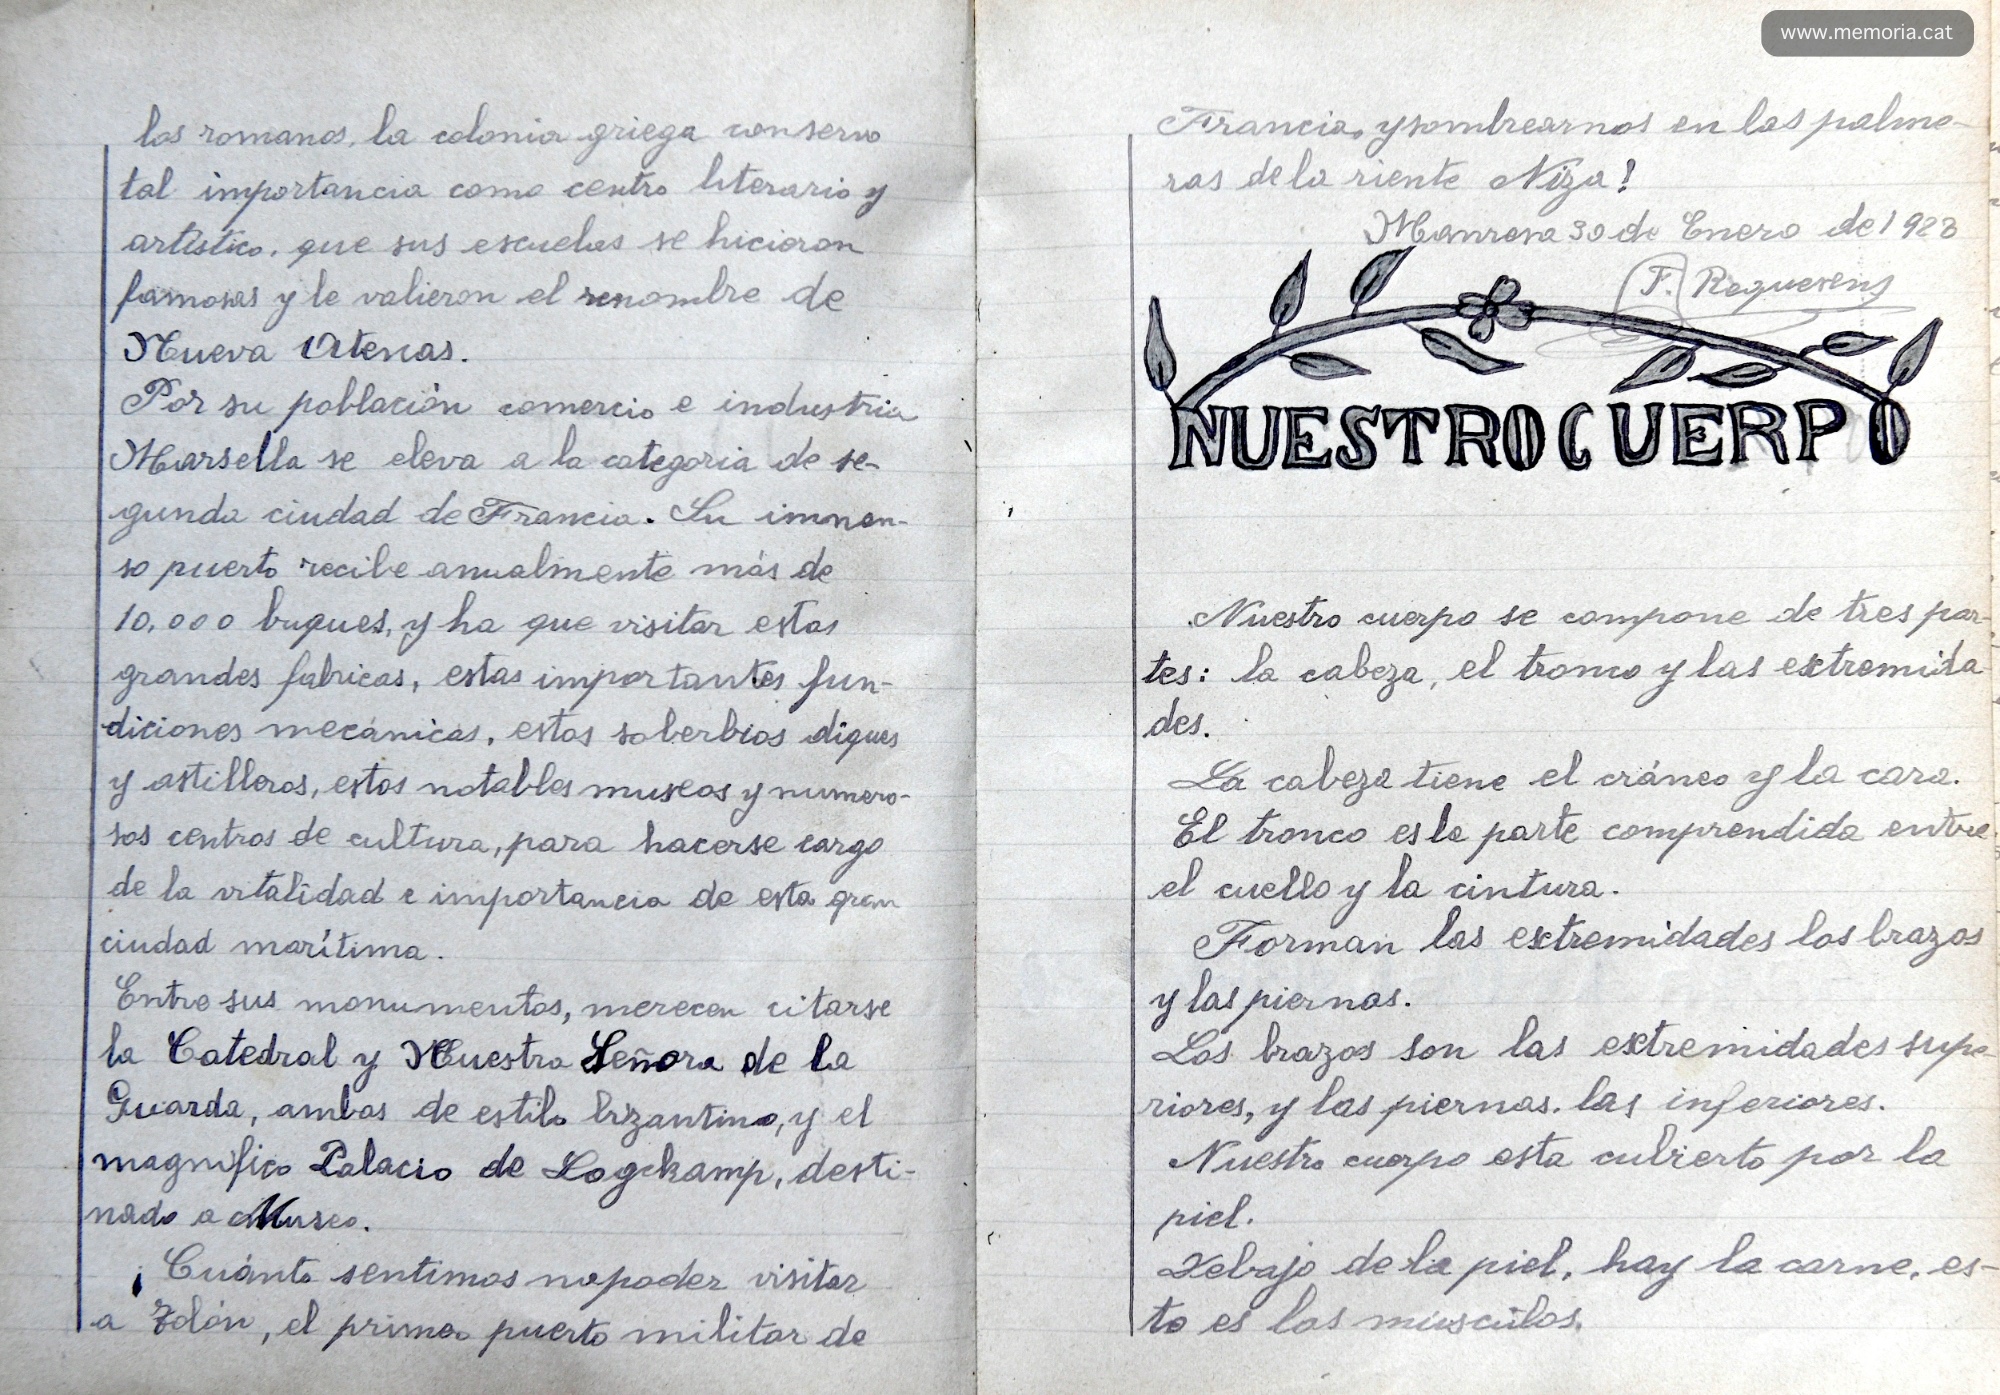 www.memoria.cat
los romanos, la colonia griega conservo
tal importancia como centro literario y
artístico, que sus escuelas se hicieron
famosas y le valieron el renombre de
Nueva Atenas.
Por su población comercio e industria
Marsella se eleva a la categoria de se-
gunda ciudad de Francia. Su inmen-
so puerto recibe anualmente más de
10.000 buques, y ha que visitar estas
grandes fabricas, estas importantes fun-
diciones mecánicas, estos soberbios diques
y astilleros, estos notables museos y numero-
sos centros de cultura, para hacerse cargo
de la vitalidad e importancia de esta gran
ciudad marítima.
Entre sus monumentos, merecen citarse
la Catedral y Nuestra Señora de la
Guarda, ambas de estilo bizantino, y el
magnifico Palacio de Logckamp, desti-
nado a Museo.
¡Cuánto sentimos no poder visitar
a Tolón, el primer puerto militar de
Francia, y sombrearnos en las palme-
ras de la riente Niza!
Manresa 30 de Enero de 1928
F. Requesens
NUESTRO CUERPO
Nuestro cuerpo se compone de tres par-
tes: la cabeza, el tronco y las extremida
des.
La cabeza tiene el cráneo y la cara.
El tronco es la parte comprendida entre
el cuello y la cintura.
Forman las extremidades los brazos
y las piernas.
Los brazos son las extremidades supe
riores, y las piernas, las inferiores.
Nuestro cuerpo esta cubierto por la
piel.
Debajo de la piel, hay la carne, es-
to es los musculos.